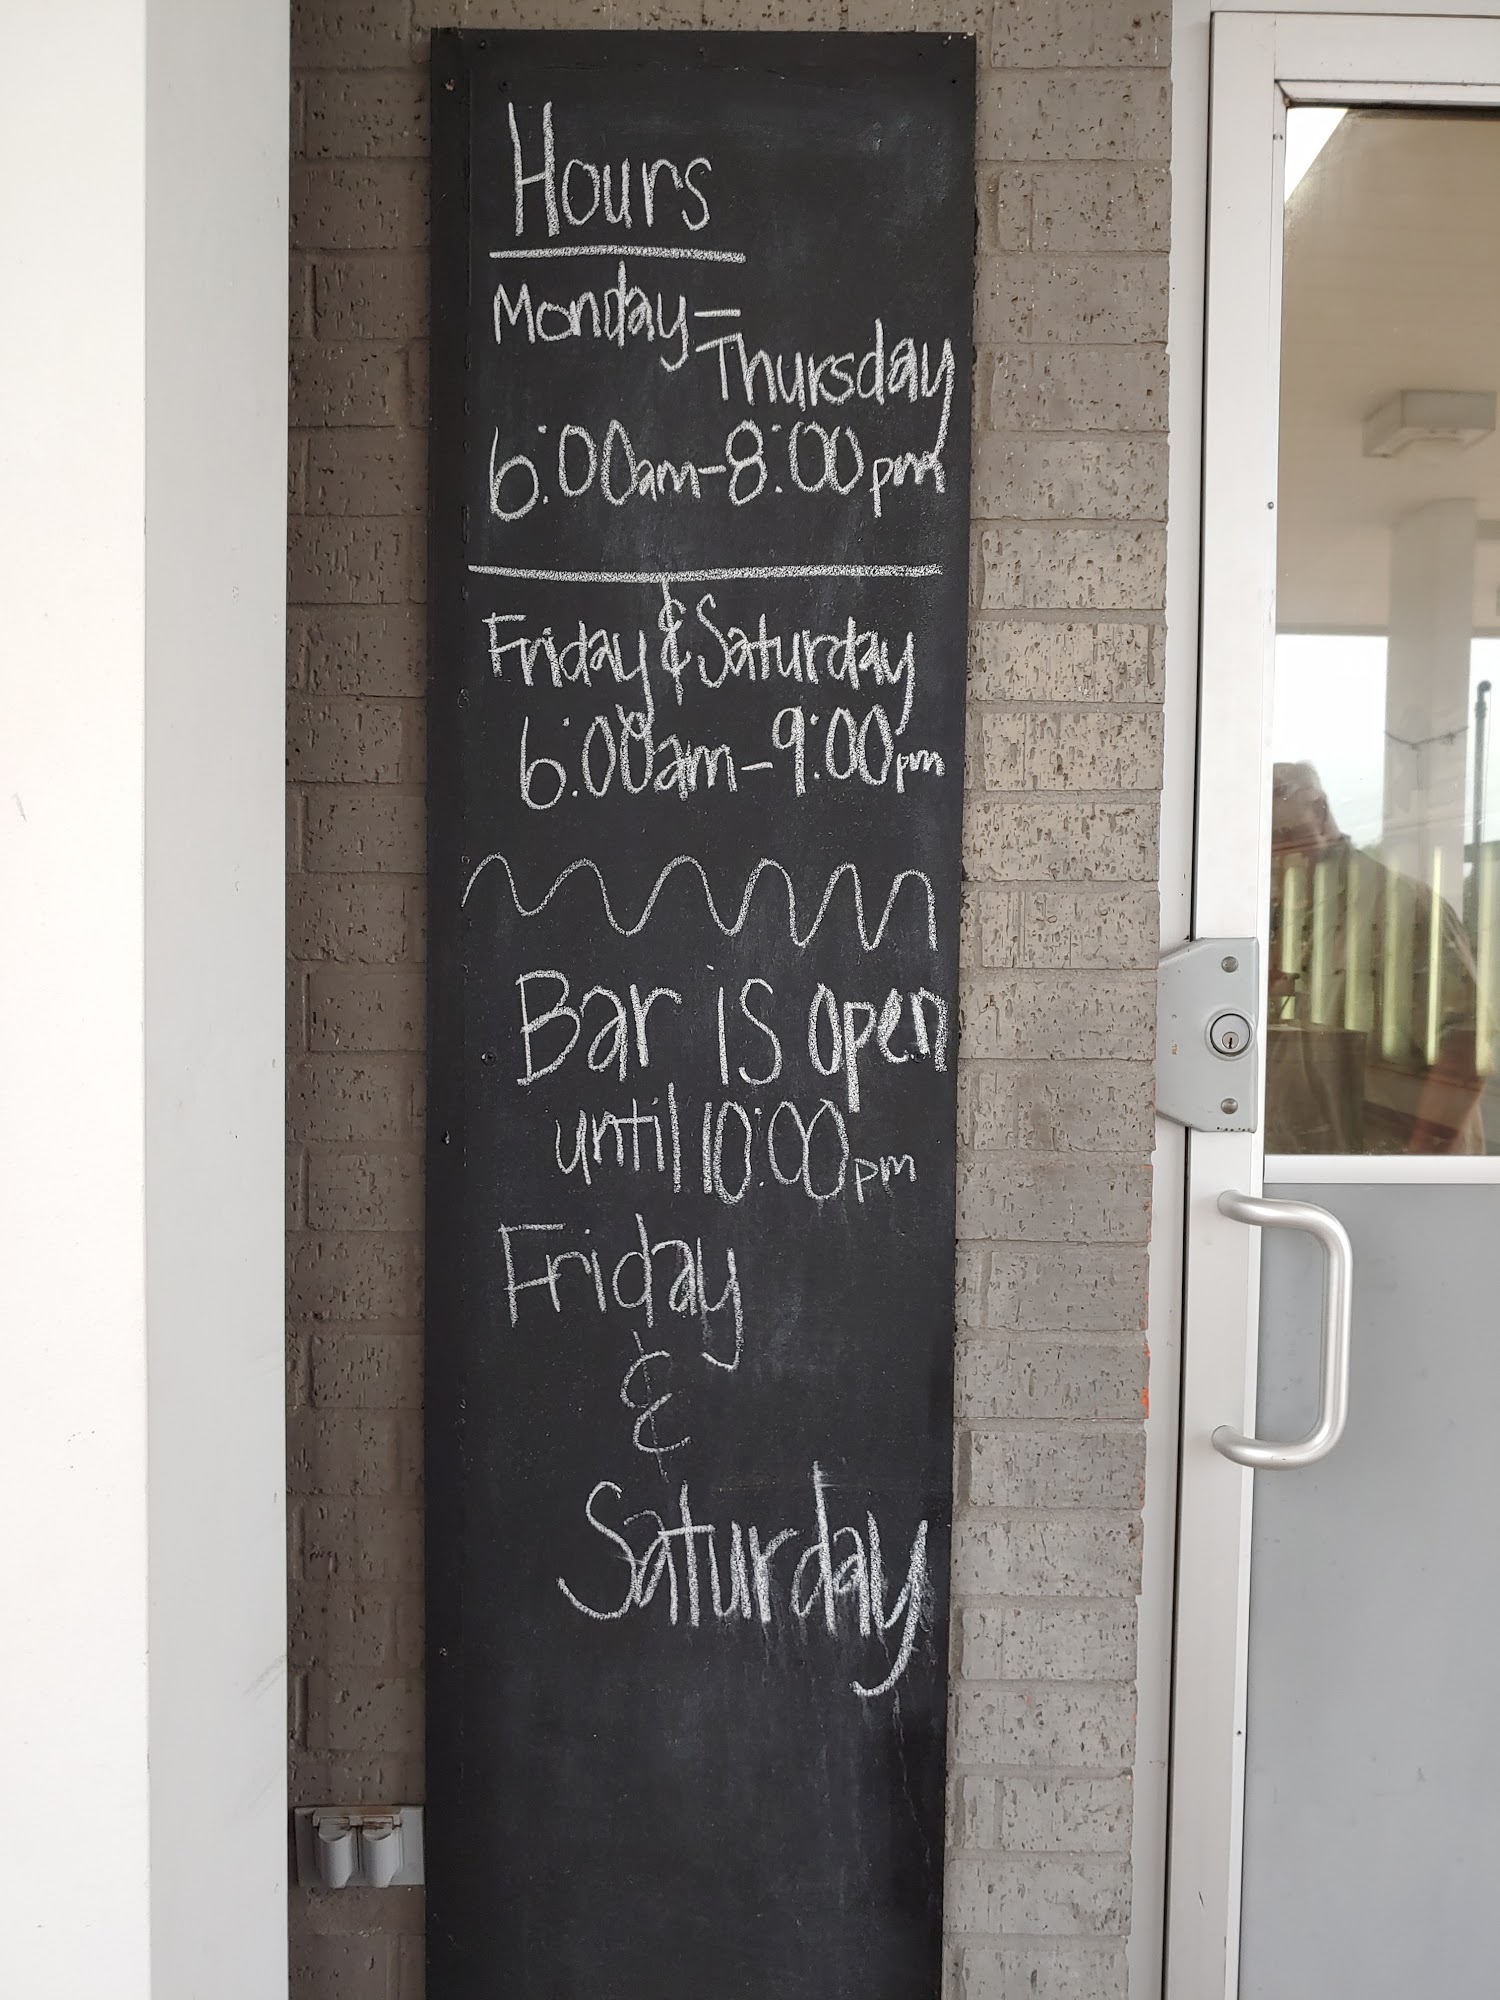 Hours
Monday-
Thursday
6:00am-8:00pm
Friday & Saturday
6:00am-9:00pm
Bar is open
until 10:00pm
Friday
&
Saturday